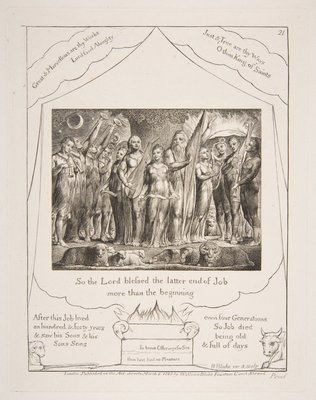 21
Great & Marvellous are thy Works
Lord God Almighty
Just & True are thy Ways
O thou King of Saints
So the Lord blessed the latter end of Job
more than the beginning
After this Job lived
an hundred & forty years
& saw his Sons & his
Sons Sons
even four Generations
So Job died
being old
& full of days
In burnt Offerings for Sin
thou hast had no Pleasure
W Blake inv & sculp
London Published as the Act directs March 8 1825 by William Blake Fountain Court Strand
Proof